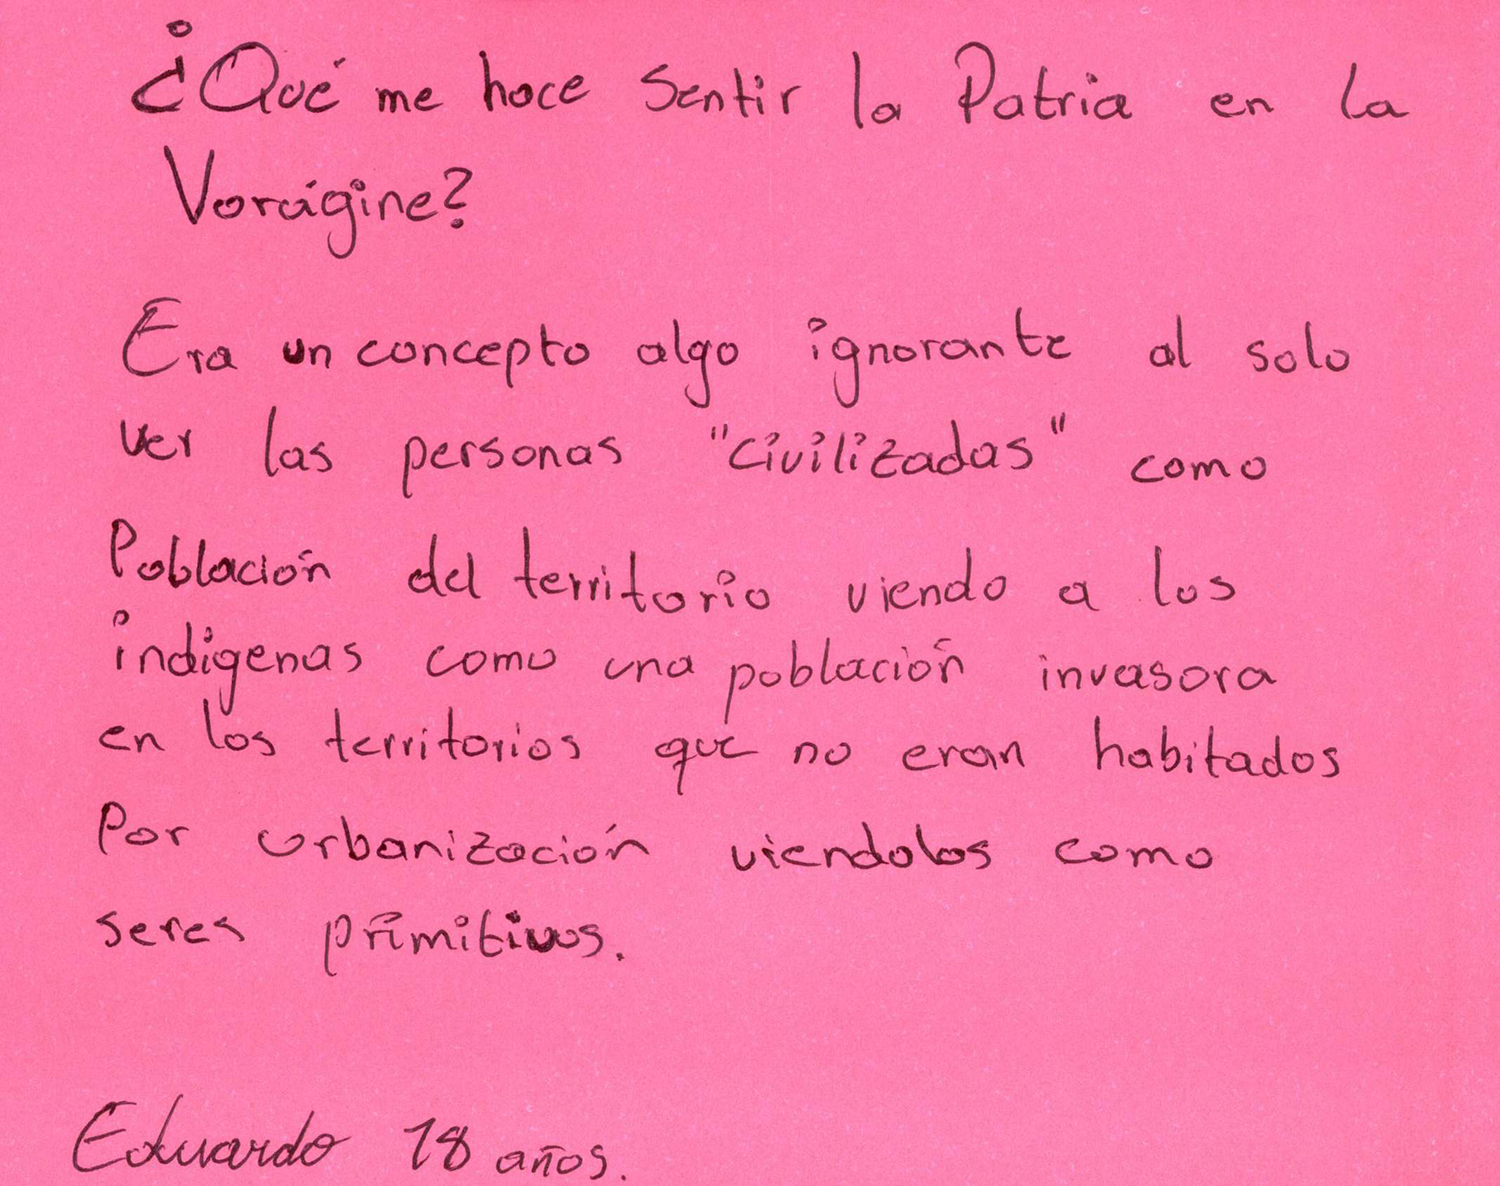 ¿Qué me hace sentir la Patria en la
Vorágine?
Era un concepto algo ignorante al solo
ver las personas "civilizadas" como
Población del territorio viendo a los
indigenas como una población invasora
en los territorios que no eran habitados
Por urbanización viendolos como
seres primitivos.
Eduardo 18 años.